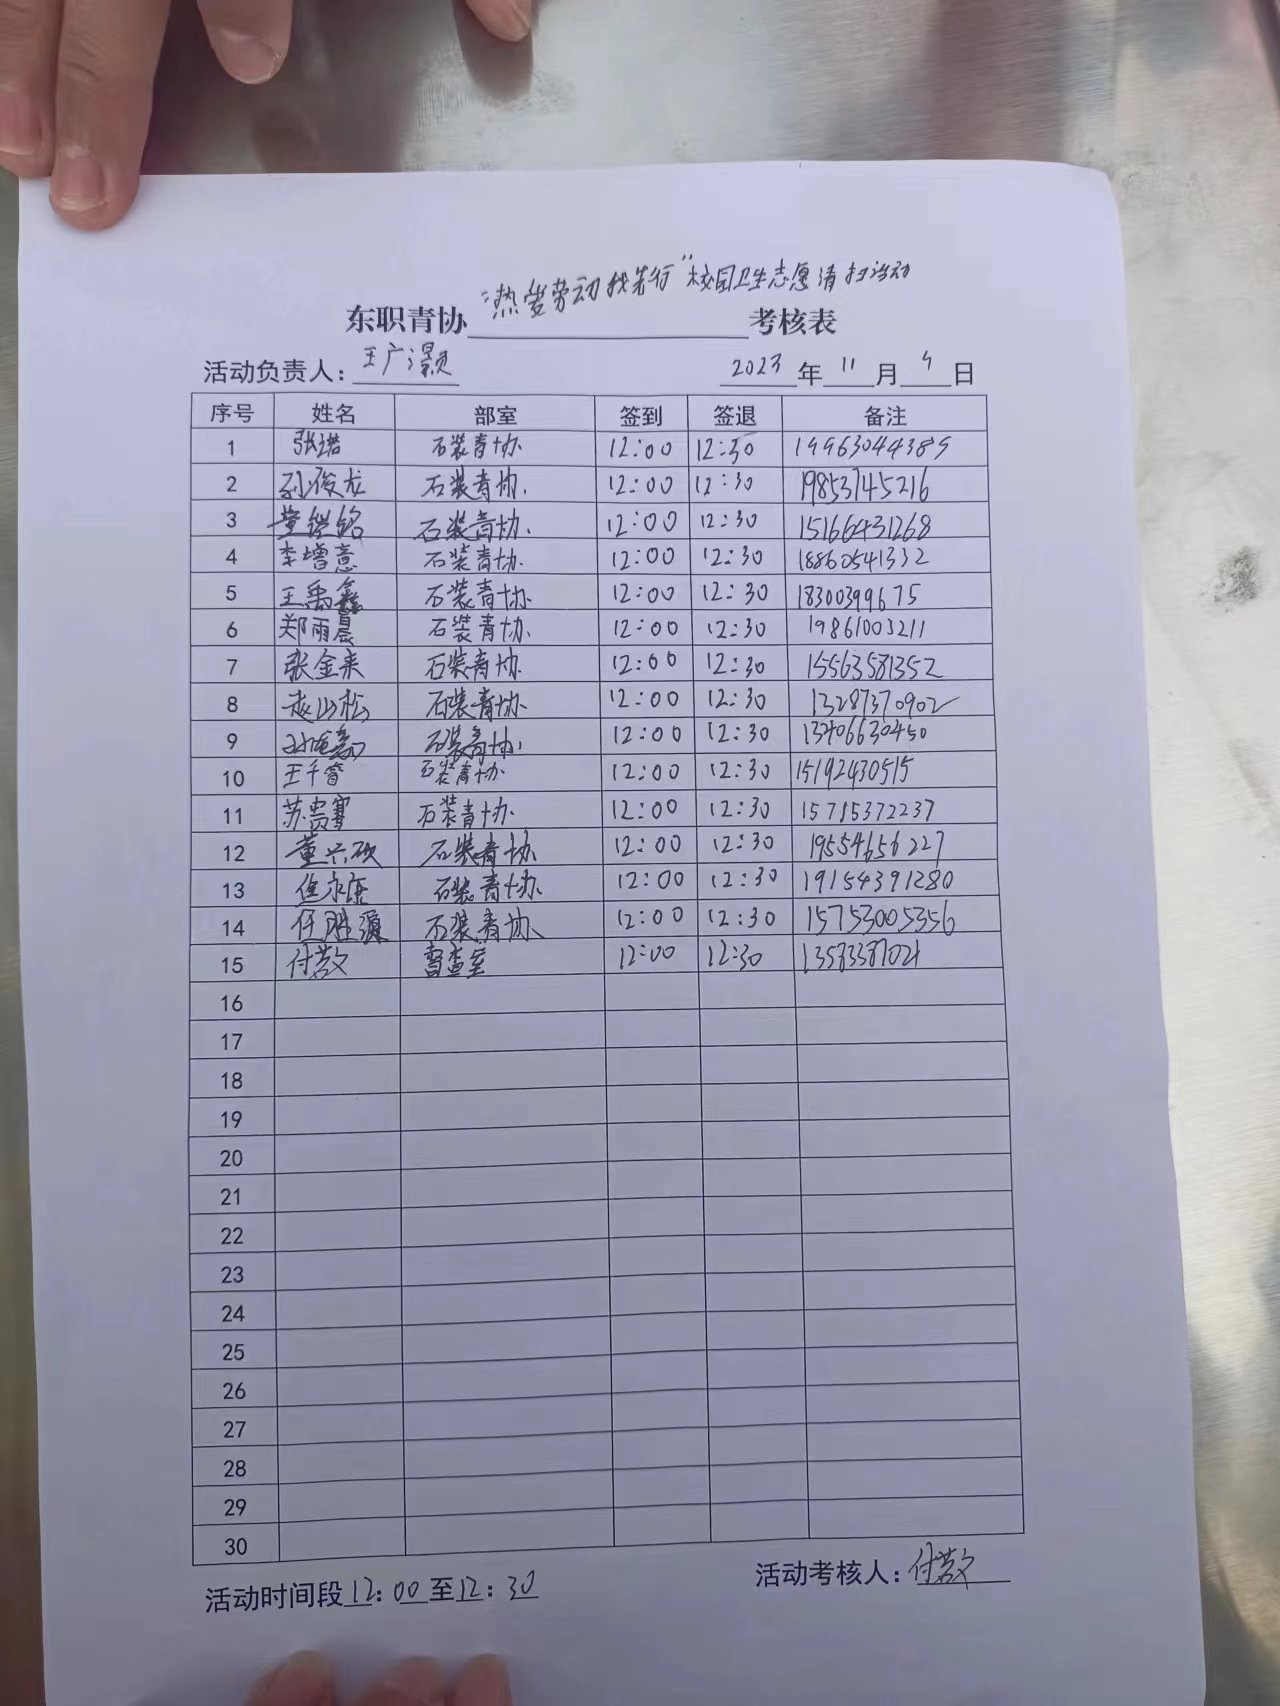 "热爱劳动我先行"校园卫生志愿清扫活动
东职青协 考核表
活动负责人: 王广灏 2023 年 11 月 日
序号 姓名 部室 签到 签退 备注
1 张诺 石装青协 12:00 12:30 19963044389
2 孙俊龙 石装青协. 12:00 12:30 19853745216
3 董继铭 石装青协. 12:00 12:30 15166431268
4 李增意 石装青协. 12:00 12:30 18860541332
5 王禹鑫 石装青协 12:00 12:30 18300399675
6 郑雨晨 石装青协. 12:00 12:30 19861003211
7 张金来 石装青协. 12:00 12:30 15563581352
8 山松 石装青协. 12:00 12:30 13287370902
9 石装青协. 12:00 12:30 13406630450
10 王千 石装青协. 12:00 12:30 15192430515
11 苏贵赛 石装青协. 12:00 12:30 15785372237
12 董兴硕 石装青协 12:00 12:30 19554656227
13 焦永 石装青协. 12:00 12:30 19154391280
14 任胜源 石装青协. 12:00 12:30 15753005356
15 付 督查室 12:00 12:30 13583387021
16
17
18
19
20
21
22
23
24
25
26
27
28
29
30
活动时间段12:00至12:30 活动考核人: 付